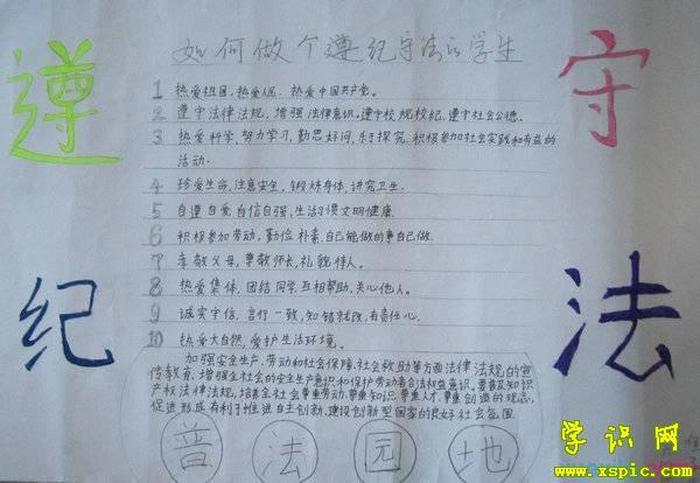 如何做个遵纪守法的学生
遵
纪
守
法
1 热爱祖国,热爱人民,热爱中国共产党。
2 遵守法律法规,增强法律意识。遵守校规校纪,遵守社会公德。
3 热爱科学,努力学习,勤思好问,乐于探究,积极参加社会实践和有益的
活动.
4 珍爱生命,注意安全,锻炼身体,讲究卫生.
5 自尊自爱,自信自强,生活习惯文明健康.
6 积极参加劳动,勤俭朴素,自己能做的事自己做.
7 孝敬父母,尊敬师长,礼貌待人。
8 热爱集体,团结同学,互相帮助,关心他人。
9 诚实守信,言行一致,知错就改,有责任心.
10 热爱大自然,爱护生活环境。
加强安全生产、劳动和社会保障、社会救助等方面法律法规的宣
传教育,增强全社会的安全生产意识和保护劳动者合法权益意识。要普及知识
产权法律法规,培养全社会尊重劳动、尊重知识、尊重人才、尊重创造的观念,
促进形成有利于推进自主创新、建设创新型国家的良好社会氛围
普法园地
学识网
www.xspic.com